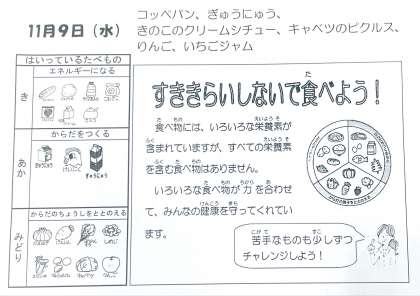 11月9日（水）
コッペパン、ぎゅうにゅう、
きのこのクリームシチュー、キャベツのピクルス、
りんご、いちごジャム
はいっているたべもの
き
エネルギーになる
あか
からだをつくる
ぎゅうにゅう
みどり
からだのちょうしをととのえる
すききらいしないで食べよう！
食べ物には、いろいろな栄養素が
含まれていますが、すべての栄養素
を含む食べ物はありません。
いろいろな食べ物が力を合わせ
て、みんなの健康を守ってくれてい
ます。
苦手なものも少しずつ
チャレンジしよう！